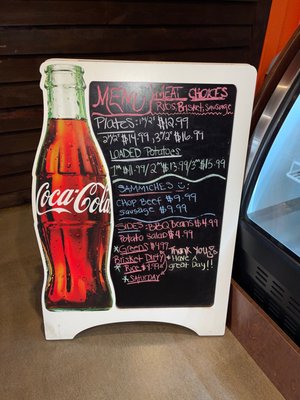 MENU MEAT CHOICES
RIBS, BRISKET, SAUSAGE
PLATES: 1 1/2 $12.99
2 1/2 $14.99, 3 1/2 $16.99
LOADED POTATOES
1" $11.99/ 2" $13.99/3" $15.99
SAMMICHES
CHOP BEEF $9.99
SAUSAGE $9.99
SIDES: BBQ BEANS $4.99
POTATO SALAD $4.99
* GREENS $4.99
BRISKET DIRTY
* RICE $4.99
* SATURDAY
Thank You
* Have a
great Day!!
Coca-Cola